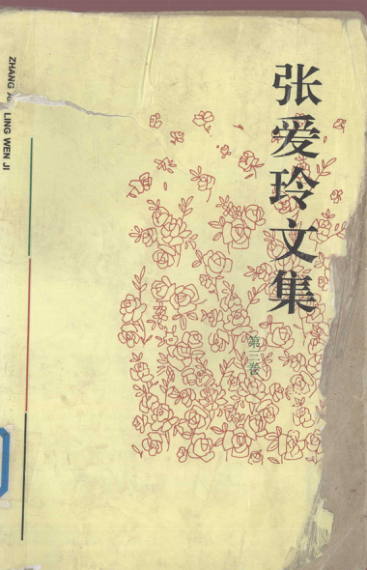 张爱玲文集
第三卷
ZHANG AI LING WEN JI